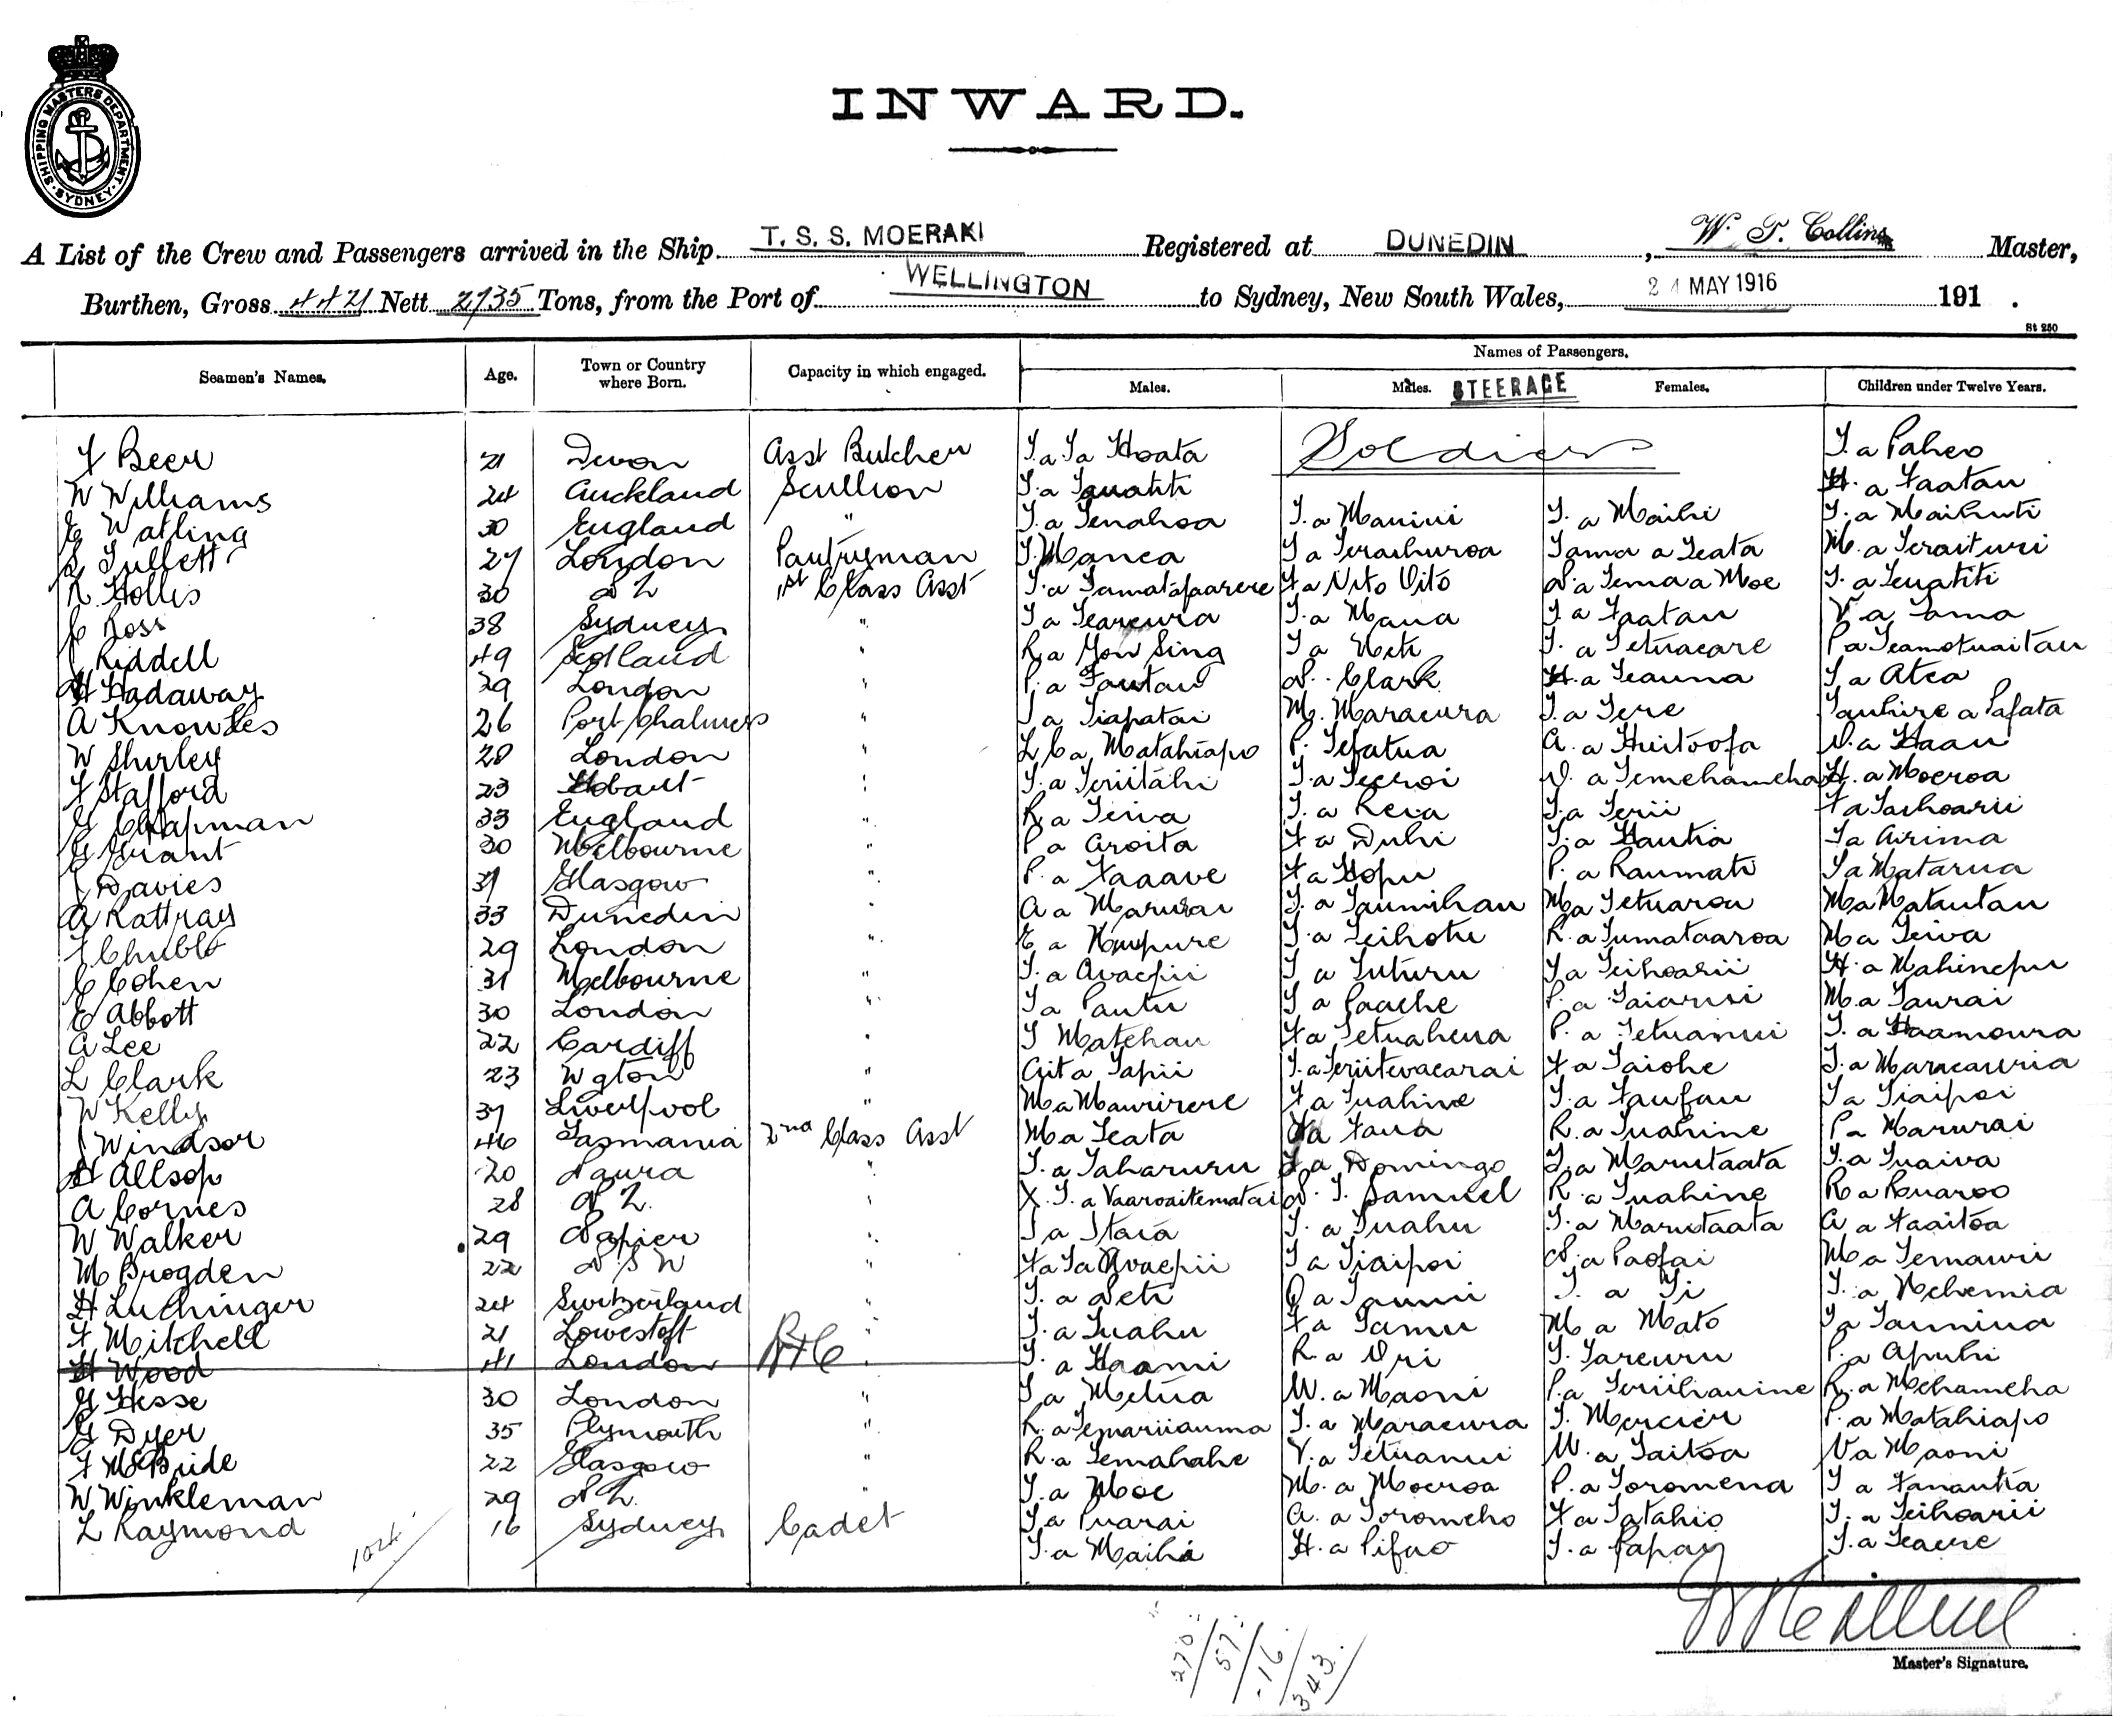 SHIPPING MASTERS DEPARTMENT · SYDNEY ·
INWARD.
A List of the Crew and Passengers arrived in the Ship T. S. S. MOERAKI Registered at DUNEDIN, W. T. Collins Master,
Burthen, Gross 4421 Nett 2735 Tons, from the Port of WELLINGTON to Sydney, New South Wales, 24 MAY 1916 191 .
St 250
Names of Passengers.
Seamen's Names. Age. Town or Country where Born. Capacity in which engaged. Males. Males. STEERAGE Females. Children under Twelve Years.
F Beer 21 Devon Asst Butcher T.a Ta Hoata Soldiers T. a Paheo
W Williams 24 Auckland Scullion T.a H. a Faatau
E Watling 30 England " T.a Tenahoa T. a Manini T. a Maihi T. a Maihuti
L Tullett 27 London Pantryman T. Manea T a Teraihuroa Tama a Teata M. a Teraituri
R Hollis 30 N Z 1st Class Asst T.a Tamatapaarere F a Nito Vito N.a Tema a Moe T. a Teuatiti
C Ross 38 Sydney " T a Teareura T. a Mana T. a Faatau V. a Tama
J Riddell 49 Scotland " R. a You Sing T a Neti T. a Tetuaeare P a Teamotuaitau
H Hadaway 29 London " P. a Fautau N. Clark H. a Teauna T a Atea
A Knowles 26 Port Chalmers " T a Tiapatai M. Maraeura T. a Tere Tauhire a Pafata
W Shirley 28 London " L C a Matahiapo P. Tefatua A. a Huitoofa N. a Haau
F Stafford 23 Hobart " T. a Teriitahi T. a Teeroi V. a Temehameha H. a Moeroa
G Chapman 33 England " R a Teiva T. a Reia T. a Terii F a Taihoarii
G Grant 30 Melbourne " P a Aroita F a Duhi T. a Hautia T a Airima
J Davies 37 Glasgow " P. a Faaave F a Hopu P. a Raumati T a Matarua
A Rattray 33 Dunedin " A a Marurai T. a Taumihau M a Tetuarou M a Matautau
F Chubb 29 London " E a Haupure T. a Teihotu R. a Tumataaroa M a Teiva
C Cohen 31 Melbourne " T. a Avaepii T a Tuturu T a Teihoarii H. a Mahinepu
E Abbott 30 London " T a Pautu T a Paache P. a Taiarui M. a Taurai
A Lee 22 Cardiff " T Matehau F a Tetuahura P. a Tetuanui T. a Haamoura
L Clark 23 Wgton " Aita Tapii T. a Teriitevaearai F a Taiohe T. a Maraeauria
W Kelly 37 Liverpool " M a Maurirere F a Tuahine T. a Faufau T a Tiaipoi
J Windsor 46 Tasmania 2nd Class Asst M a Teata F a Faua R. a Tuahine P a Marurai
H Allsop 20 Naura " T. a Taharuru F a Domingo T. a Marutaata T. a Tuaiva
A Cornes 28 N Z. " X. T. a Vaaroaitematai N. T. Samuel R. a Tuahine R a Ruaroo
W Walker 29 Napier " T a Itaia T. a Tuahu T. a Marutaata A a Faaitoa
M Brogden 22 N S W " F a Ta Avaepii T a Tiaipoi N. a Paofai M a Temauri
H Luchinger 24 Switzerland " T. a Peti O a Taunui T. a Ti T. a Nehemia
F Mitchell 21 Lowestoft " T. a Tuahu F a Tamu M a Mato T a Taumiua
H Wood 41 London T. a Haami R. a Ori T. Tareuru P. a Apuhi
G Hesse 30 London " T a Metua W. a Maoni P. a Teriihauine R. a Mehameha
G Dyer 35 Plymouth " R. a Temariiauma T. a Maraeura T. Mercier P. a Matahiapo
F McBride 22 Glasgow " R. a Temahahe V. a Tetuanui W. a Taitoa V a Maoni
W Winkleman 29 N Z. " T. a Moe M. a Moeroa P. a Toromona T a Fanautia
L Raymond 16 Sydney Cadet T. a Puarai A. a Toromeho F a Tatahio T. a Teihoarii
T. a Maiha H. a Pifao T. a Papay T. a Teaere
1024
270
57
16
343
Master's Signature.